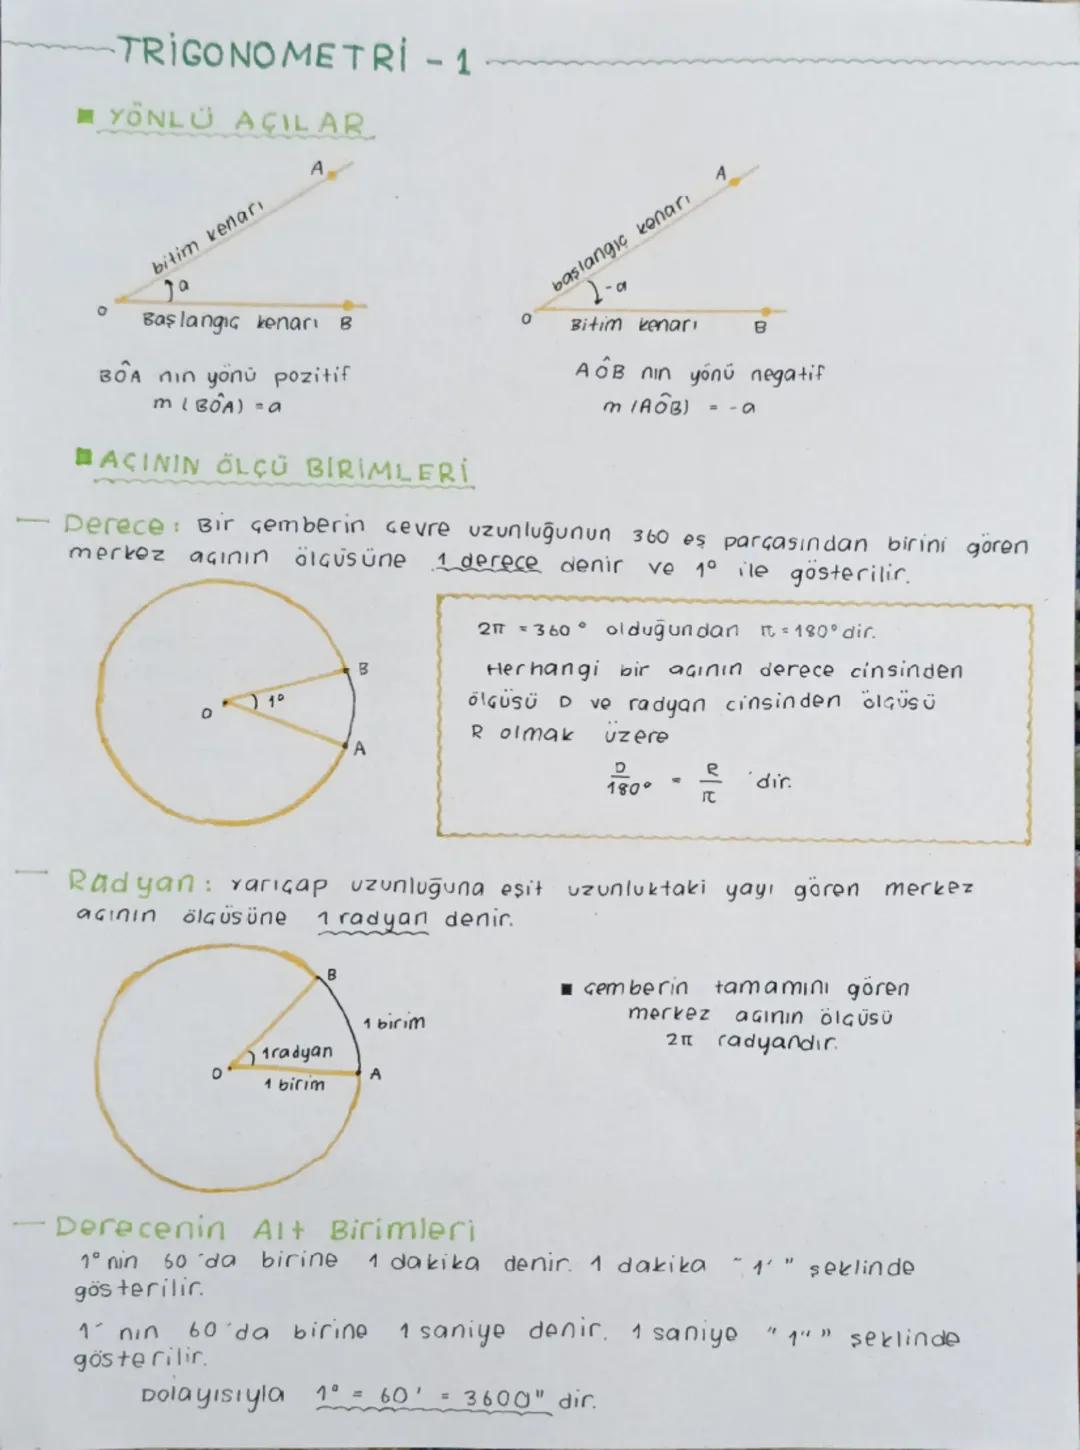 TRİGONOMETRİ - 1
YÖNLÜ AÇILAR
A
bitim kenarı
a
O
Başlangıç kenarı B
BÔA nın yönü pozitif
m (BÔA) = a
A
başlangıç kenarı
-a
O
Bitim kenarı B
AÔB nın yönü negatif
m (AÔB) = -a
AÇININ ÖLÇÜ BİRİMLERİ
Derece: Bir çemberin çevre uzunluğunun 360 eş parçasından birini gören
merkez açının ölçüsüne 1 derece denir ve 1° ile gösterilir.
B
1°
O
A
2π = 360° olduğundan π = 180° dir.
Herhangi bir açının derece cinsinden
ölçüsü D ve radyan cinsinden ölçüsü
R olmak üzere
D/180° = R/π 'dir.
Radyan: Yarıçap uzunluğuna eşit uzunluktaki yayı gören merkez
açının ölçüsüne 1 radyan denir.
B
1 birim
1radyan
O
1 birim
A
çemberin tamamını gören
merkez açının ölçüsü
2π radyandır.
Derecenin Alt Birimleri
1° nin 60 'da birine 1 dakika denir. 1 dakika "1'" şeklinde
gösterilir.
1' nın 60'da birine 1 saniye denir. 1 saniye "1"" şeklinde
gösterilir.
Dolayısıyla 1° = 60' = 3600" dir.